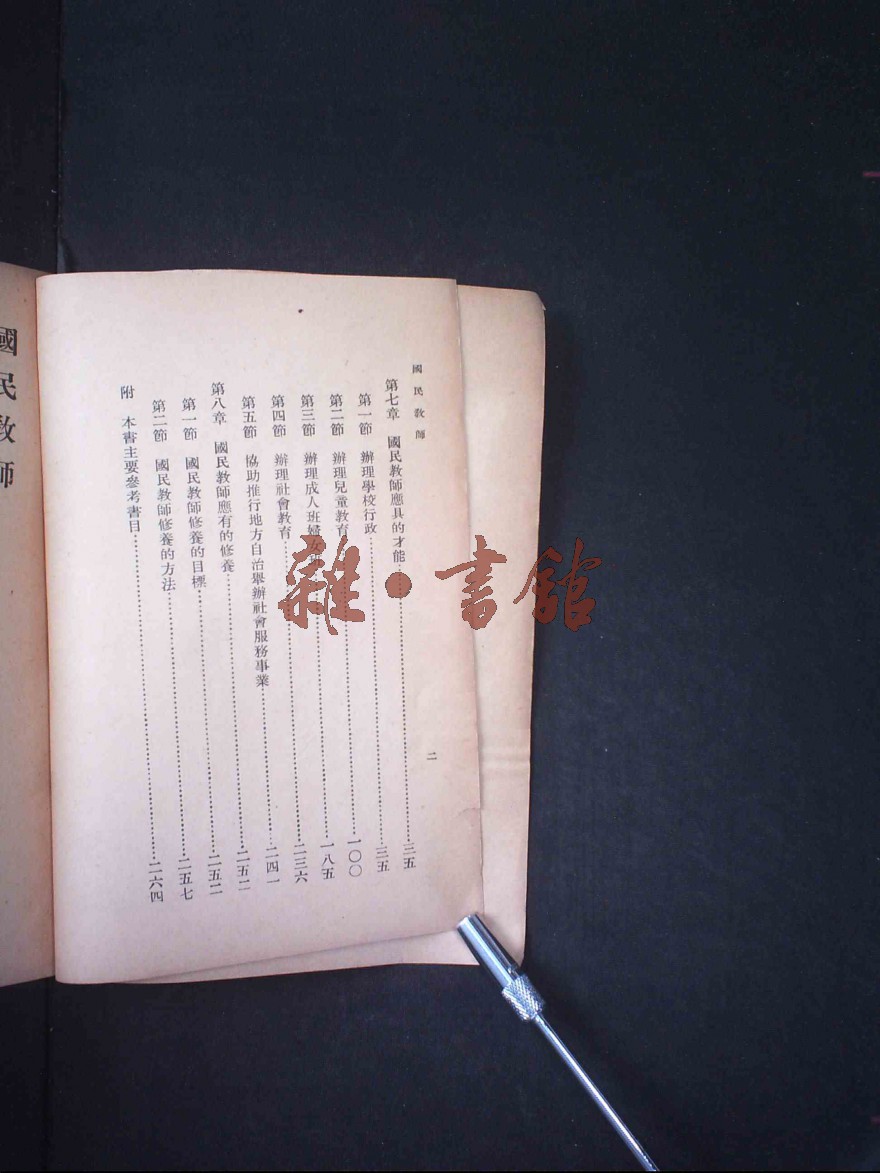 國民教師
第七章　國民教師應具的才能……三五
第一節　辦理學校行政……三五
第二節　辦理兒童教育……一〇〇
第三節　辦理成人班婦女……一八五
第四節　辦理社會教育……二三六
第五節　協助推行地方自治舉辦社會服務事業……二四一
第八章　國民教師應有的修養……二五二
第一節　國民教師修養的目標……二五二
第二節　國民教師修養的方法……二五七
附　本書主要參考書目……二六四
二
國民教師
雜·書館